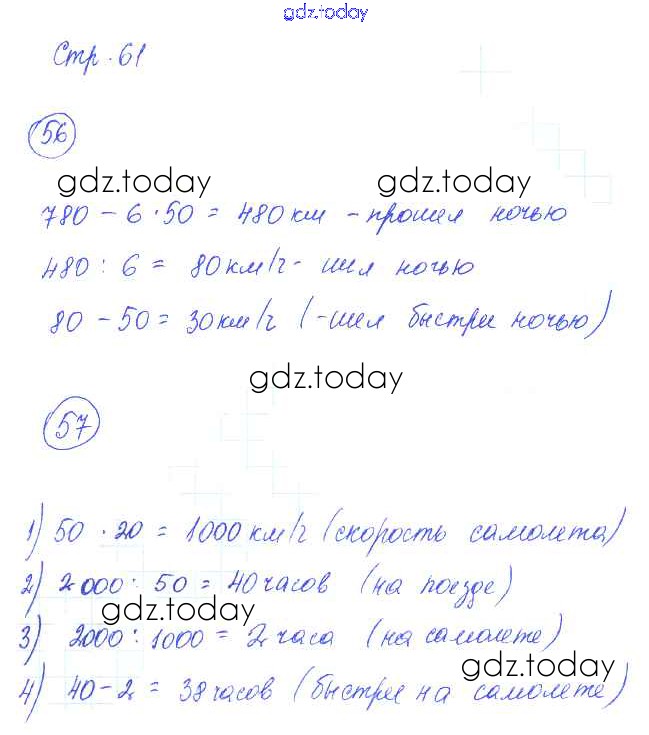 gdz.today
Стр. 61
56
gdz.today gdz.today
780 - 6 · 50 = 480 км - прошел ночью
480 : 6 = 80 км/ч - шел ночью
80 - 50 = 30 км/ч (-шел быстрее ночью)
gdz.today
57
1) 50 · 20 = 1000 км/ч (скорость самолета)
2) 2000 : 50 = 40 часов (на поезде)
gdz.today
3) 2000 : 1000 = 2 часа (на самолете)
gdz.today
4) 40 - 2 = 38 часов (быстрее на самолете)